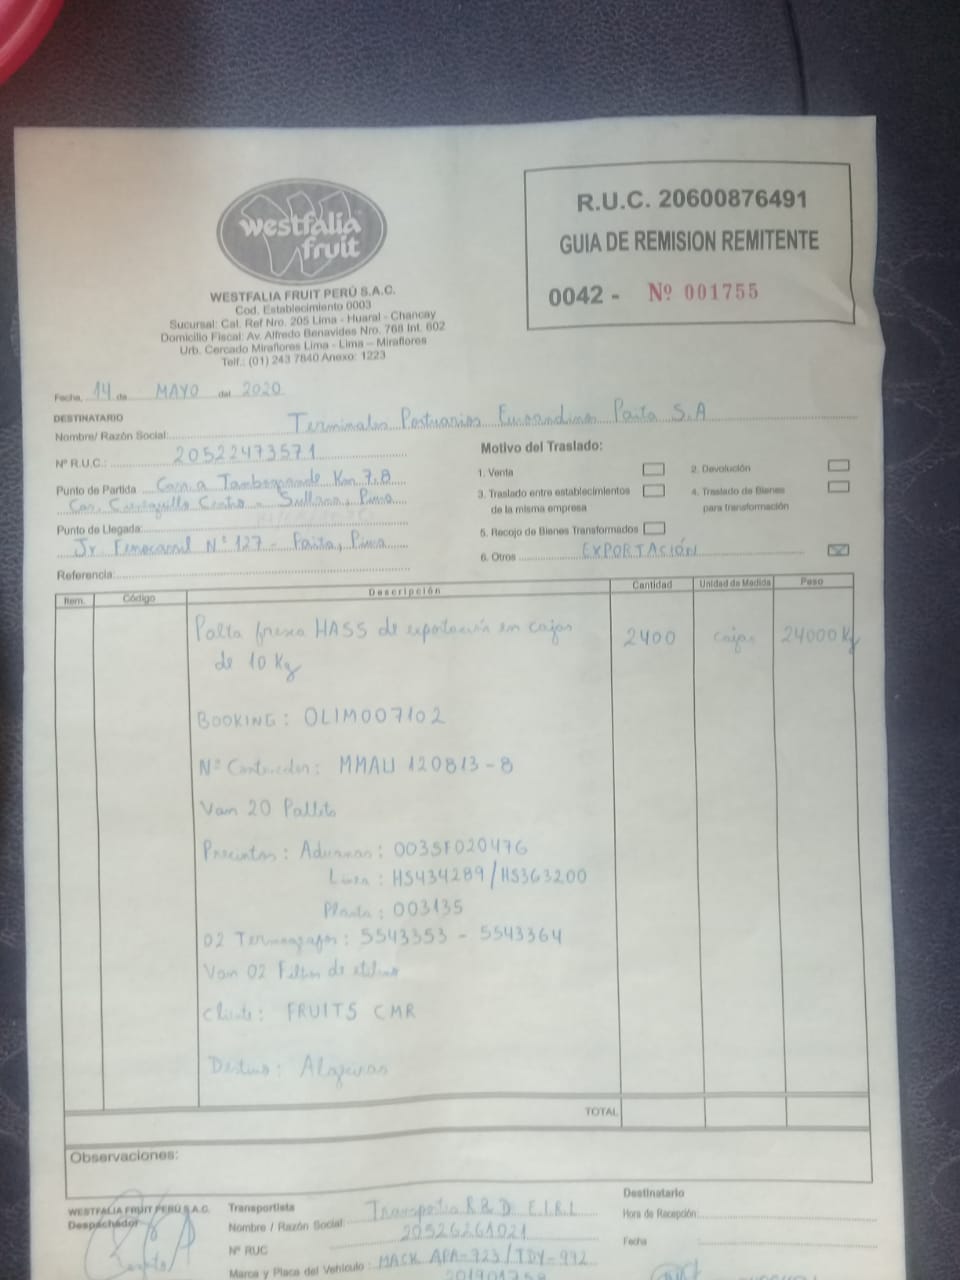 westfalia
fruit
WESTFALIA FRUIT PERÚ S.A.C.
Cod. Establecimiento 0003
Sucursal: Cal. Ref Nro. 205 Lima - Huaral - Chancay
Domicilio Fiscal: Av. Alfredo Benavides Nro. 768 Int. 602
Urb. Cercado Miraflores Lima - Lima – Miraflores
Telf.: (01) 243 7840 Anexo: 1223
R.U.C. 20600876491
GUIA DE REMISION REMITENTE
0042 - Nº 001755
Fecha, 14 de MAYO del 2020
DESTINATARIO
Nombre/ Razón Social: Terminales Portuarios Euroandinos Paita S.A
Nº R.U.C.: 20522473571
Punto de Partida Carr. a Tambogrande Km 7.8
Cas. Cieneguillo Centro - Sullana, Piura
Punto de Llegada:
Jr. Ferrocarril Nº 127 - Paita, Piura
Referencia:
Motivo del Traslado:
1. Venta
2. Devolución
3. Traslado entre establecimientos
de la misma empresa
4. Traslado de Bienes
para transformación
5. Recojo de Bienes Transformados
6. Otros EXPORTACIÓN
Item. Código Descripción Cantidad Unidad de Medida Peso
Palta fresca HASS de exportación en cajas 2400 cajas 24000 Kg
de 10 Kg
BOOKING: OLIM007102
Nº Contenedor: MMAU 120813-8
Van 20 Pallets
Precintos: Aduanas: 0035F020476
Linea: HS434289/HS363200
Planta: 003135
02 Termógrafos: 5543353 - 5543364
Van 02 Filtros de etileno
Cliente: FRUITS CMR
Destino: Algeciras
TOTAL
Observaciones:
WESTFALIA FRUIT PERÚ S.A.C.
Despachador
Transportista
Nombre / Razón Social: Transportes R & D E.I.R.L
Nº RUC 20526261021
Marca y Placa del Vehículo: MACK APA-923/TDY-992
Destinatario
Hora de Recepción:
Fecha